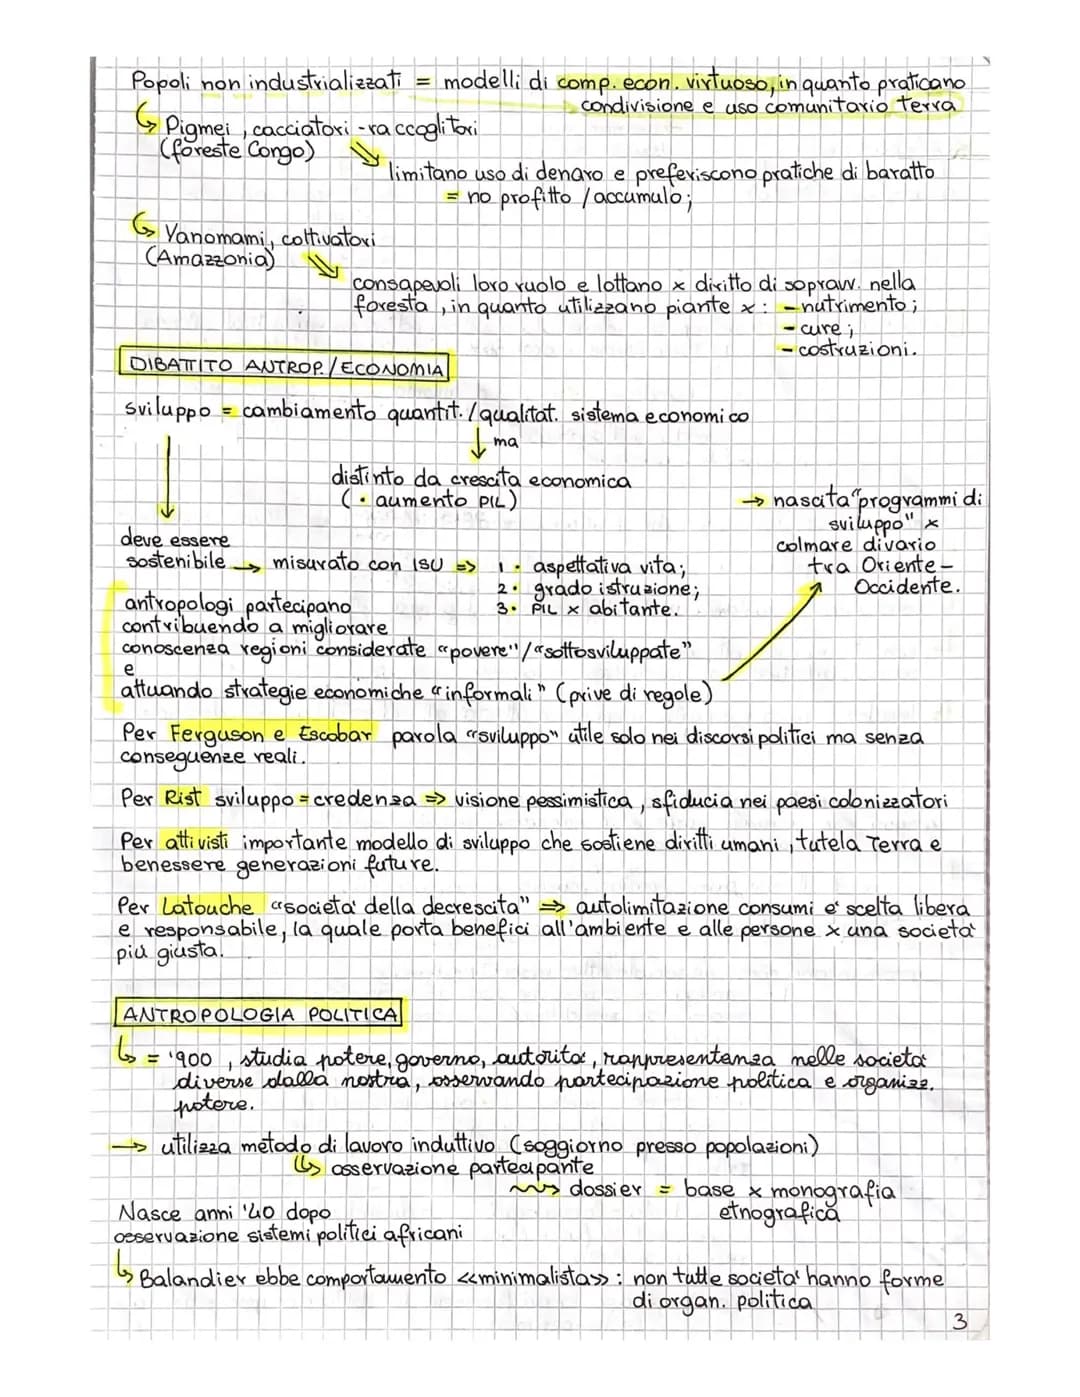 Popoli non industrializzati = modelli di comp. econ. virtuoso, in quanto praticano
condivisione e uso comunitario terra
↳ Pigmei, cacciatori-raccoglitori
(foreste Congo)
limitano uso di denaro e preferiscono pratiche di baratto
= no profitto / accumulo;
↳ Yanomami, coltivatori
(Amazzonia)
consapevoli loro ruolo e lottano x diritto di sopravv. nella
foresta, in quanto utilizzano piante x: - nutrimento;
- cure;
- costruzioni.
DIBATTITO ANTROP./ECONOMIA
sviluppo = cambiamento quantit./qualitat. sistema economico
↓ ma
distinto da crescita economica
(• aumento PIL)
→ nascita "programmi di
sviluppo" x
colmare divario
tra Oriente-
Occidente.
deve essere
sostenibile → misurato con ISU => 1• aspettativa vita;
2• grado istruzione;
3• PIL x abitante.
antropologi partecipano
contribuendo a migliorare
conoscenza regioni considerate "povere"/"sottosviluppate"
e
attuando strategie economiche "informali" (prive di regole)
Per Ferguson e Escobar parola "sviluppo" utile solo nei discorsi politici ma senza
conseguenze reali.
Per Rist sviluppo = credenza => visione pessimistica, sfiducia nei paesi colonizzatori
Per attivisti importante modello di sviluppo che sostiene diritti umani, tutela Terra e
benessere generazioni future.
Per Latouche "società della decrescita" => autolimitazione consumi è scelta libera
e responsabile, la quale porta benefici all'ambiente e alle persone x una società
più giusta.
ANTROPOLOGIA POLITICA
↳ = '900, studia potere, governo, autorità, rappresentanza nelle società
diverse dalla nostra, osservando partecipazione politica e organizz.
potere.
→ utilizza metodo di lavoro induttivo (soggiorno presso popolazioni)
↳ osservazione partecipante
dossier = base x monografia
etnografica
Nasce anni '40 dopo
osservazione sistemi politici africani
↳ Balandier ebbe comportamento <<minimalista>>: non tutte società hanno forme
di organ. politica
3